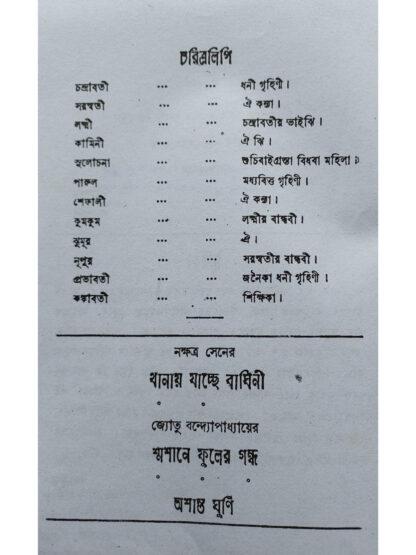 চরিত্রলিপি
চন্দ্রাবতী ... ... ধনী গৃহিণী।
সরস্বতী ... ... ঐ কন্যা।
লক্ষ্মী ... ... চন্দ্রাবতীর ভাইঝি।
কামিনী ... ... ঐ ঝি।
সুলোচনা ... ... শুচিবাইগ্রস্তা বিধবা মহিলা।
পারুল ... ... মধ্যবিত্ত গৃহিণী।
শেফালী ... ... ঐ কন্যা।
কুমকুম ... ... লক্ষ্মীর বান্ধবী।
ঝুমুর ... ... ঐ।
নূপুর ... ... সরস্বতীর বান্ধবী।
প্রভাবতী ... ... জনৈকা ধনী গৃহিণী।
কঙ্কাবতী ... ... শিক্ষিকা।
নক্ষত্র সেনের
থানায় যাচ্ছে বাঘিনী
জ্যোতু বন্দ্যোপাধ্যায়ের
শ্মশানে ফুলের গন্ধ
অশান্ত ঘূর্ণি